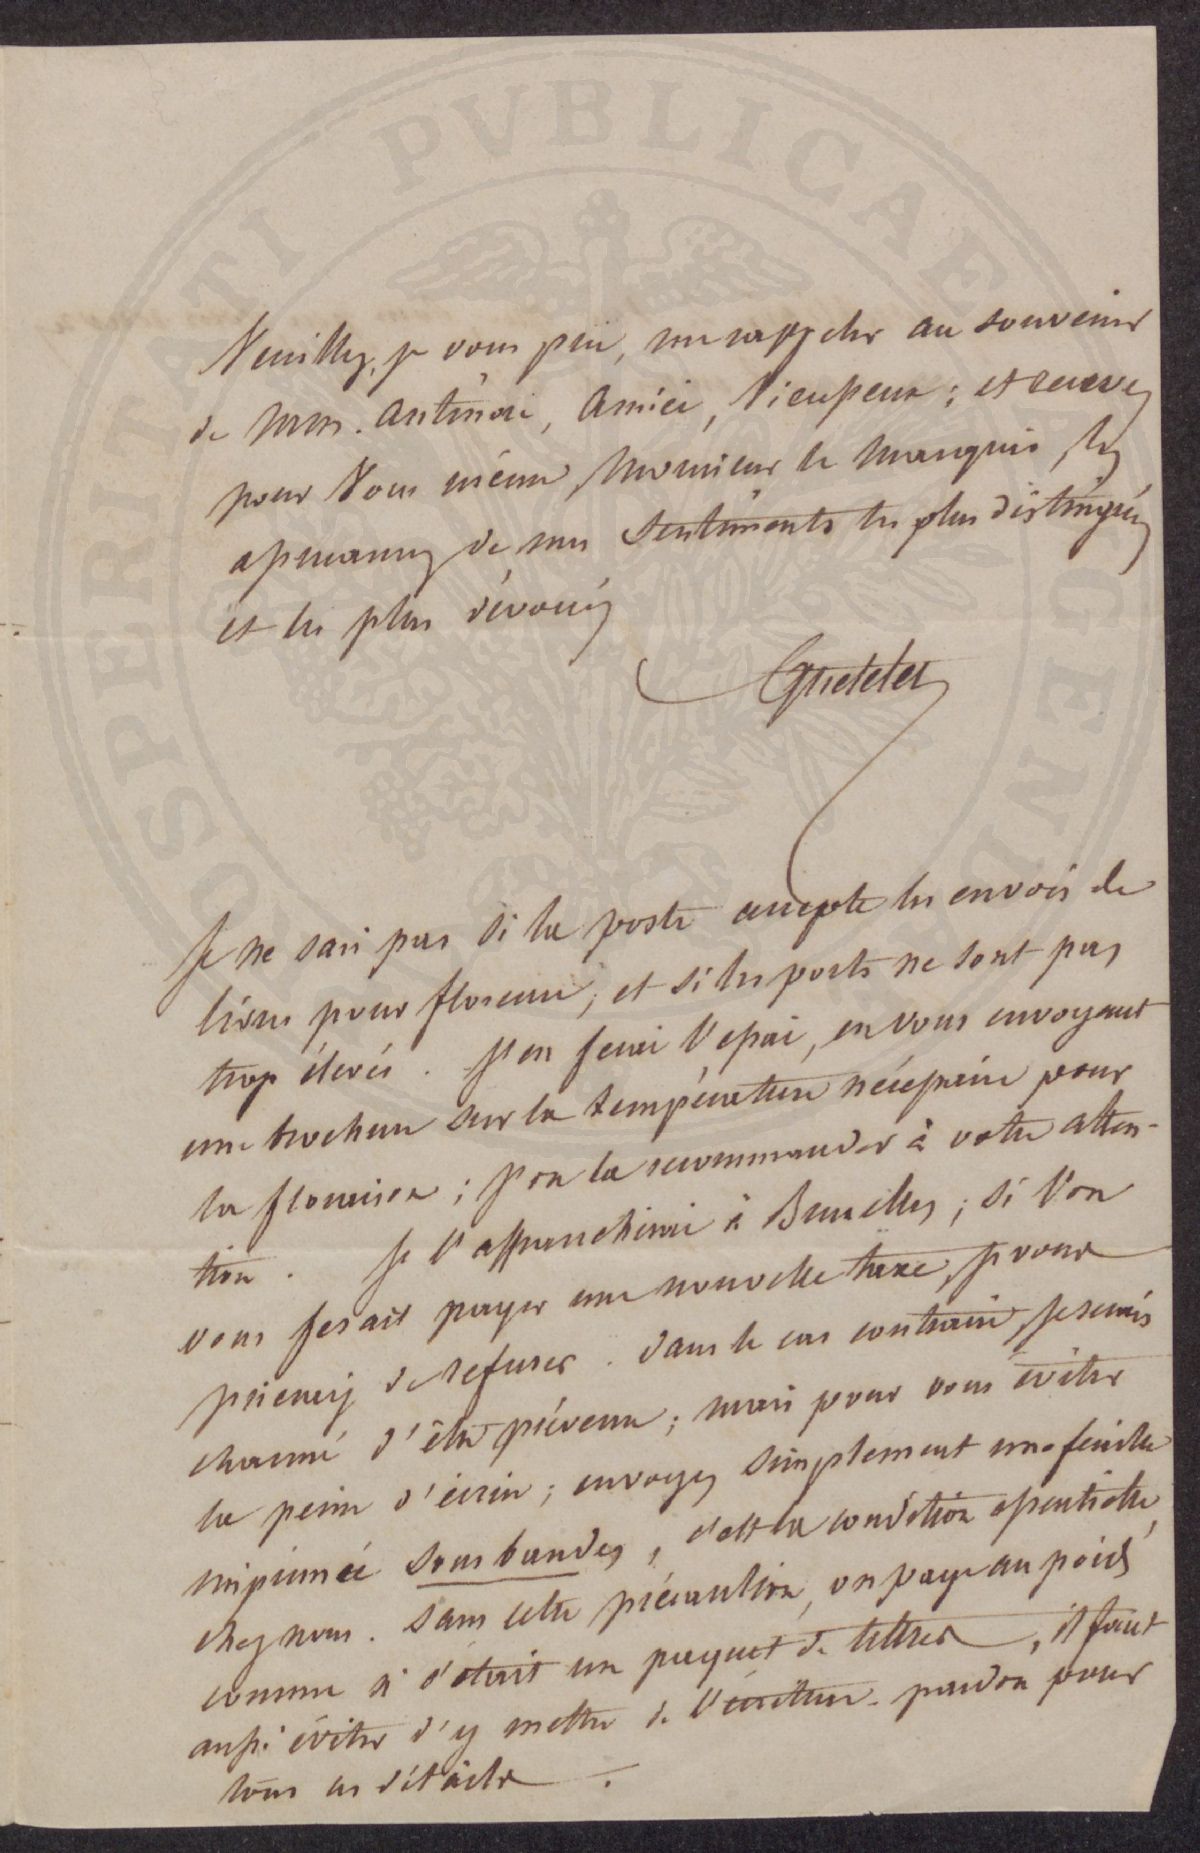 Veuillez, je vous prie, me rappeler au souvenir
de Mm. Antinori, Amici, Vieupeux ; et recevez
pour Vous même, Monsieur le Marquis, les
assurances de mes sentiments les plus distingués
et les plus dévoués
Quetelet
Je ne sais pas si la poste accepte les envois de
livres pour florence, et si les ports ne sont pas
trop élevés. J'en ferai l'essai, en vous envoyant
une brochure sur la température nécessaire pour
la floraison ; j'ose la recommander à votre atten-
tion. Je l'affranchirai à Bruxelles ; si l'on
vous fesait payer une nouvelle taxe, je vous
prierais de refuser. dans le cas contraire, je serais
charmé d'être prévenu ; mais pour vous éviter
la peine d'écrire ; envoyez simplement une feuille
imprimée sous bandes, c'est la condition essentielle
chez nous. sans cette précaution, on paye au poids
comme si c'était un paquet de lettres, il faut
aussi éviter d'y mettre de l'écriture. pardon pour
tous ces détails.
PVBLICAE